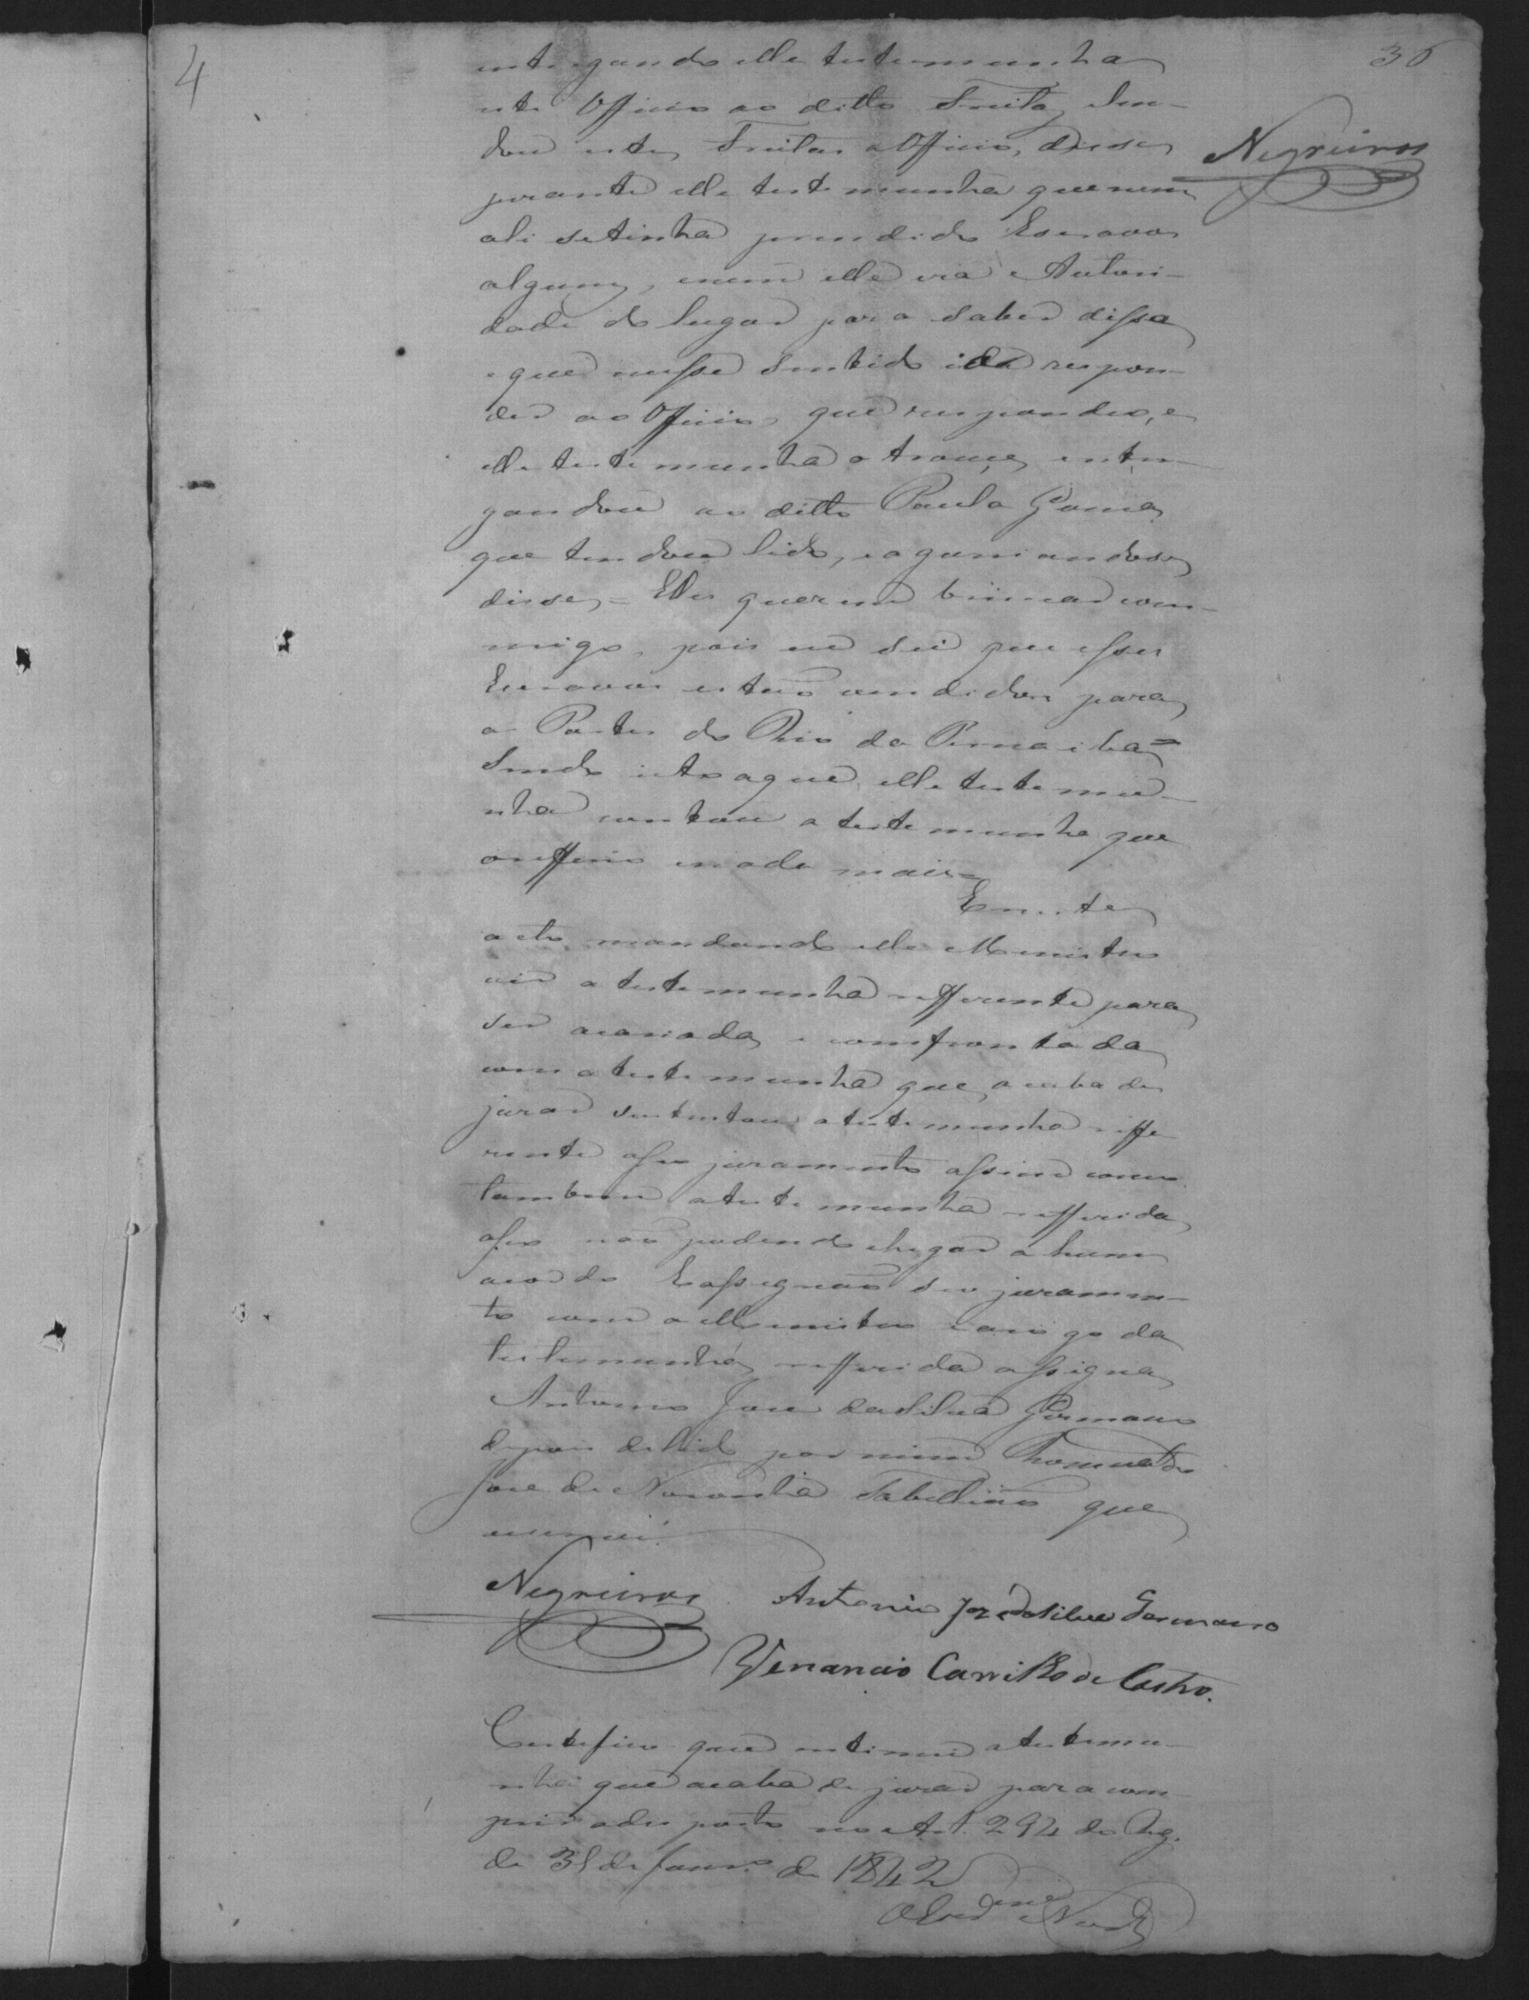 4
36
entregando elle testemunha
este Officio ao ditto Freitas, lendo
dou este Freitas o Officio, disse
Negreiros
perante elle testemunha que nem
ali setinha prendido Escravos
alguns, nem elle era Autori-
dade do lugar para saber dissa
e que nesse sentido ia respon-
der ao Officio, que respondeo, e
elle testemunha o trouçe, entre-
gandou ao ditto Paula Gomes
que tendou lido, e agoniandose
disse = Elles querem brincar com-
migo, pois eu sei que esses
Escravos estão vendidos para
as Partes do Rio da Parnaiba =
Sendo isto aque elle testemu-
nha contou a testemunha que
oreffirio e nada mais =
Eneste
acto mandando elle Menistro
vir a testemunha refferente para
ser acariada e comfrontada
com a testemunha que acaba de
jurar sustentou a testemunha reffe-
rente oseo juramento assim como
tambem a testemunha refferida
oseo não podendo chegar a hum
acordo E assignão seo juramen-
to com o Menistro e a rogo da
testemunha refferida assigna
Antonio Jose da Silva Germano
depois de lido por mim
Jose de Noronha Tabellião que
escrevi.
Negreiros Antonio Joze da Silva Germano
Venancio Carrilho de Castro.
Certefico que intimei a testemu-
nha que acaba de jurar para com
prir odisposto no Art. 294 do Reg.
de 31 de Janro de 1842